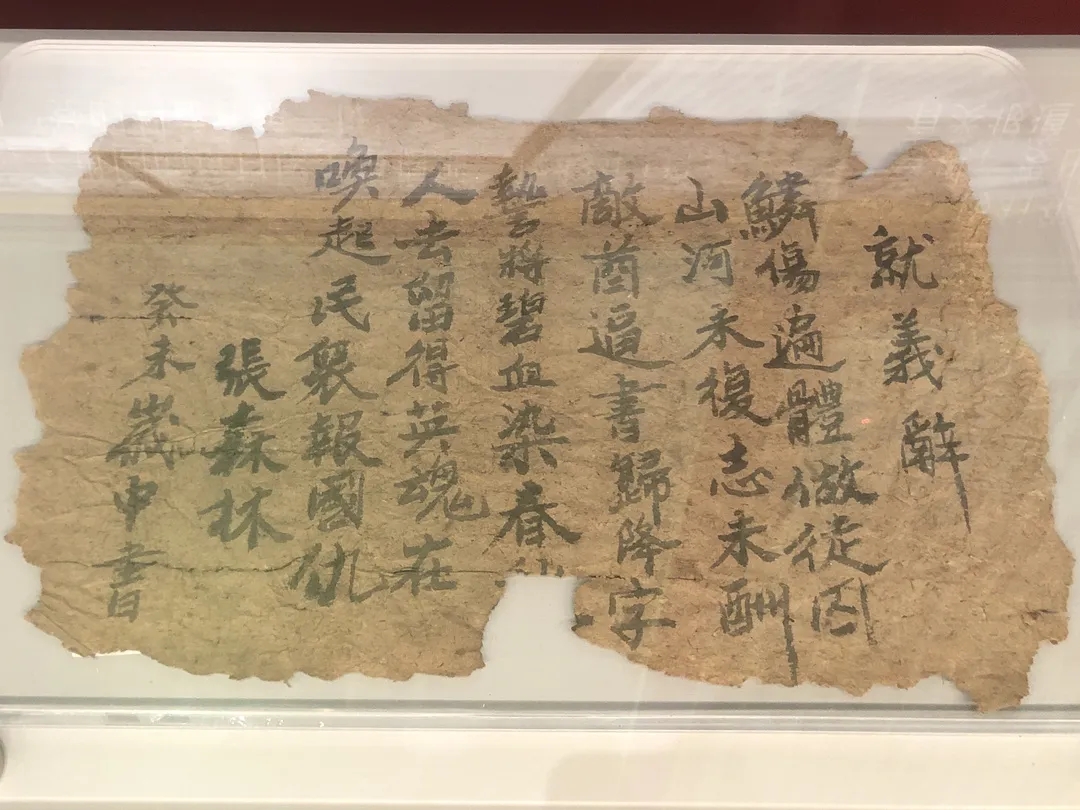 就義辭
鱗傷遍體做徒囚
山河未復志未酬
敵酋逼書歸降字
誓將碧血染春
人去留得英魂在
喚起民衆報國仇
張森林
癸未歲中書